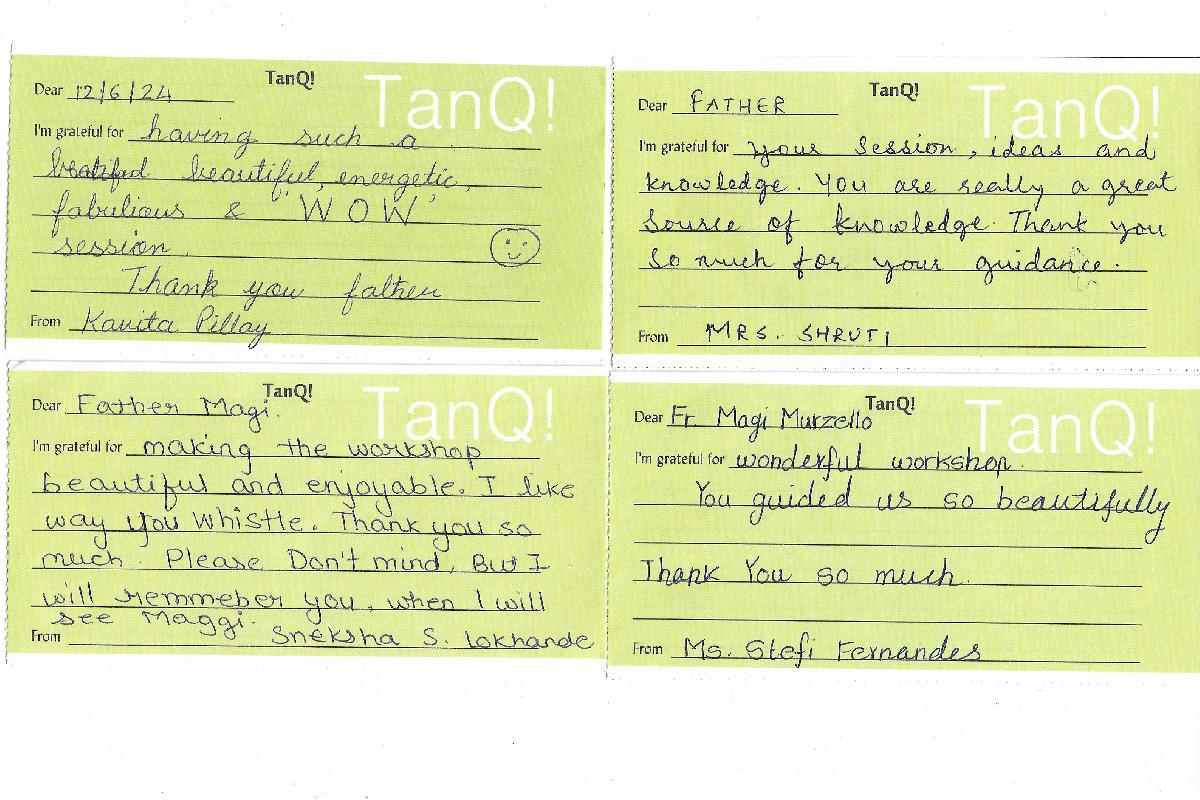 TanQ!
TanQ!
Dear 12/6/24
I'm grateful for having such a
beautiful, energetic,
fabulious & 'WOW'
session.
Thank you father
From Kavita Pillay
TanQ!
TanQ!
Dear FATHER
I'm grateful for your session, ideas and
knowledge. You are really a great
source of knowledge. Thank you
so much for your guidance.
From MRS. SHRUTI
TanQ!
TanQ!
Dear Father Magi.
I'm grateful for making the workshop
beautiful and enjoyable. I like
way you whistle. Thank you so
much. Please Don't mind, But I
will remmeber you, when I will
see Maggi.
From Sneksha S. Lokhande
TanQ!
TanQ!
Dear Fr. Magi Murzello
I'm grateful for wonderful workshop.
You guided us so beautifully
Thank You so much.
From Ms. Stefi Fernandes